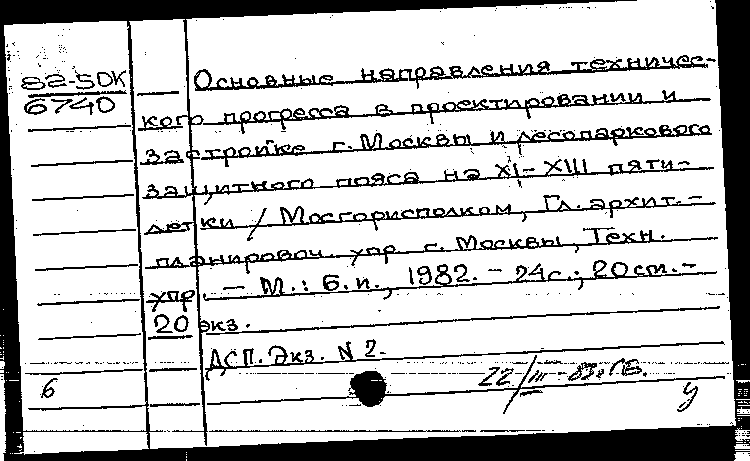 82-5DK
6740
Основные направления техничес-
кого прогресса в проектировании и
застройке г. Москвы и лесопаркового
защитного пояса на XI-XIII пяти-
летки / Мосгорисполком, Гл. архит.-
планировоч. упр. г. Москвы, Техн.
упр. - М.: Б. и., 1982. - 24с.; 20см. -
20 экз.
ДСП. Экз. N 2.
22/III-83г. Г.Б.
б
у